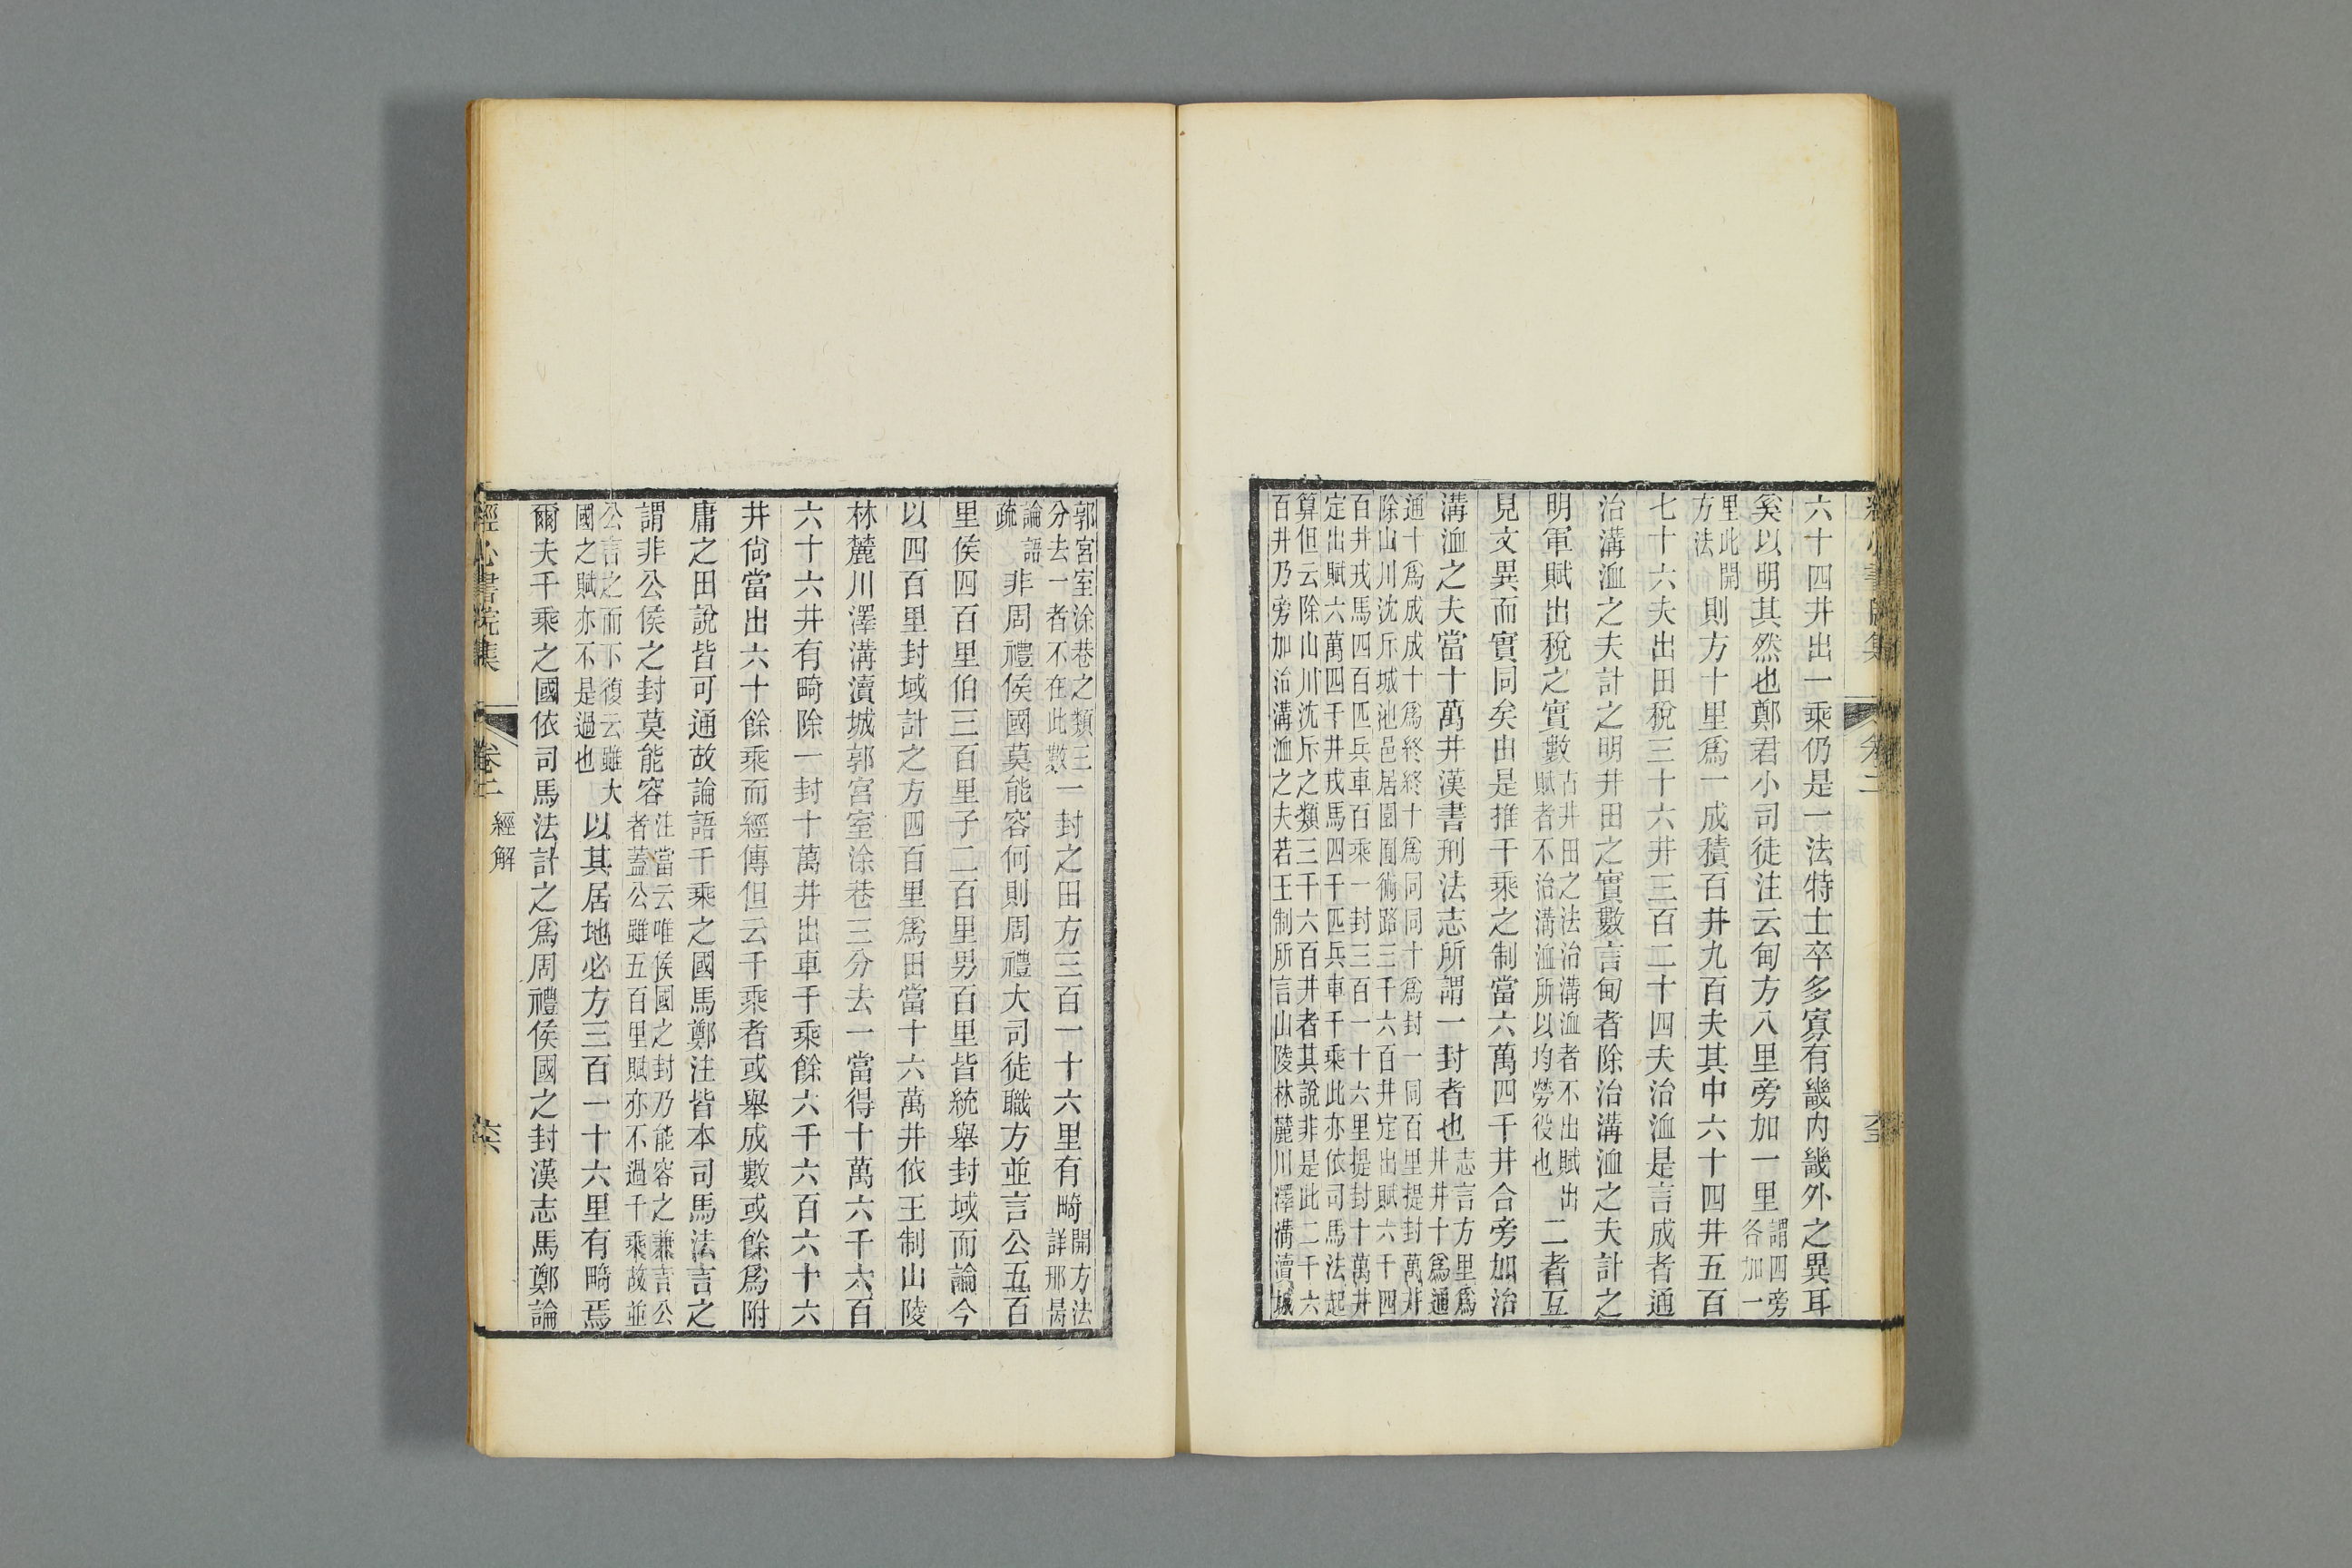 六十四井出一乘仍是一法特士卒多寡有畿內畿外之異耳
奚以明其然也鄭君小司徒注云甸方八里旁加一里謂四旁各加一
里此開方法則方十里爲一成積百井九百夫其中六十四井五百
七十六夫出田稅三十六井三百二十四夫治洫是言成者通
治溝洫之夫計之明井田之實數言甸者除治溝洫之夫計之
明軍賦出稅之實數古井田之法治溝洫者不出賦出賦者不治溝洫所以均勞役也二者互
見文異而實同矣由是推千乘之制當六萬四千井合旁加治
溝洫之夫當十萬井漢書刑法志所謂一封者也志言方里爲井井十爲通
通十爲成成十爲終終十爲同同十爲封一同百里提封萬井
除山川沈斥城池邑居園囿術路三千六百井定出賦六千四
百井戎馬四百匹兵車百乘一封三百一十六里提封十萬井
定出賦六萬四千井戎馬四千匹兵車千乘此亦依司馬法起
算但云除山川沈斥之類三千六百井者其說非是此二千六
百井乃旁加治溝洫之夫若王制所言山陵林麓川澤溝瀆城
郭宮室涂巷之類三分去一者不在此數一封之田方三百一十六里有畸開方法詳邢昺
論語疏非周禮侯國莫能容何則周禮大司徒職方並言公五百
里侯四百里伯三百里子二百里男百里皆統舉封域而論今
以四百里封域計之方四百里爲田當十六萬井依王制山陵
林麓川澤溝瀆城郭宮室涂巷三分去一當得十萬六千六百
六十六井有畸除一封十萬井出車千乘餘六千六百六十六
井尙當出六十餘乘而經傳但云千乘者或舉成數或餘爲附
庸之田說皆可通故論語千乘之國馬鄭注皆本司馬法言之
謂非公侯之封莫能容注當云唯侯國之封乃能容之兼言公者蓋公雖五百里賦亦不過千乘故並
公言之而下復云雖大國之賦亦不是過也以其居地必方三百一十六里有畸焉
爾夫千乘之國依司馬法計之爲周禮侯國之封漢志馬鄭論
經心書院集
卷二
經解